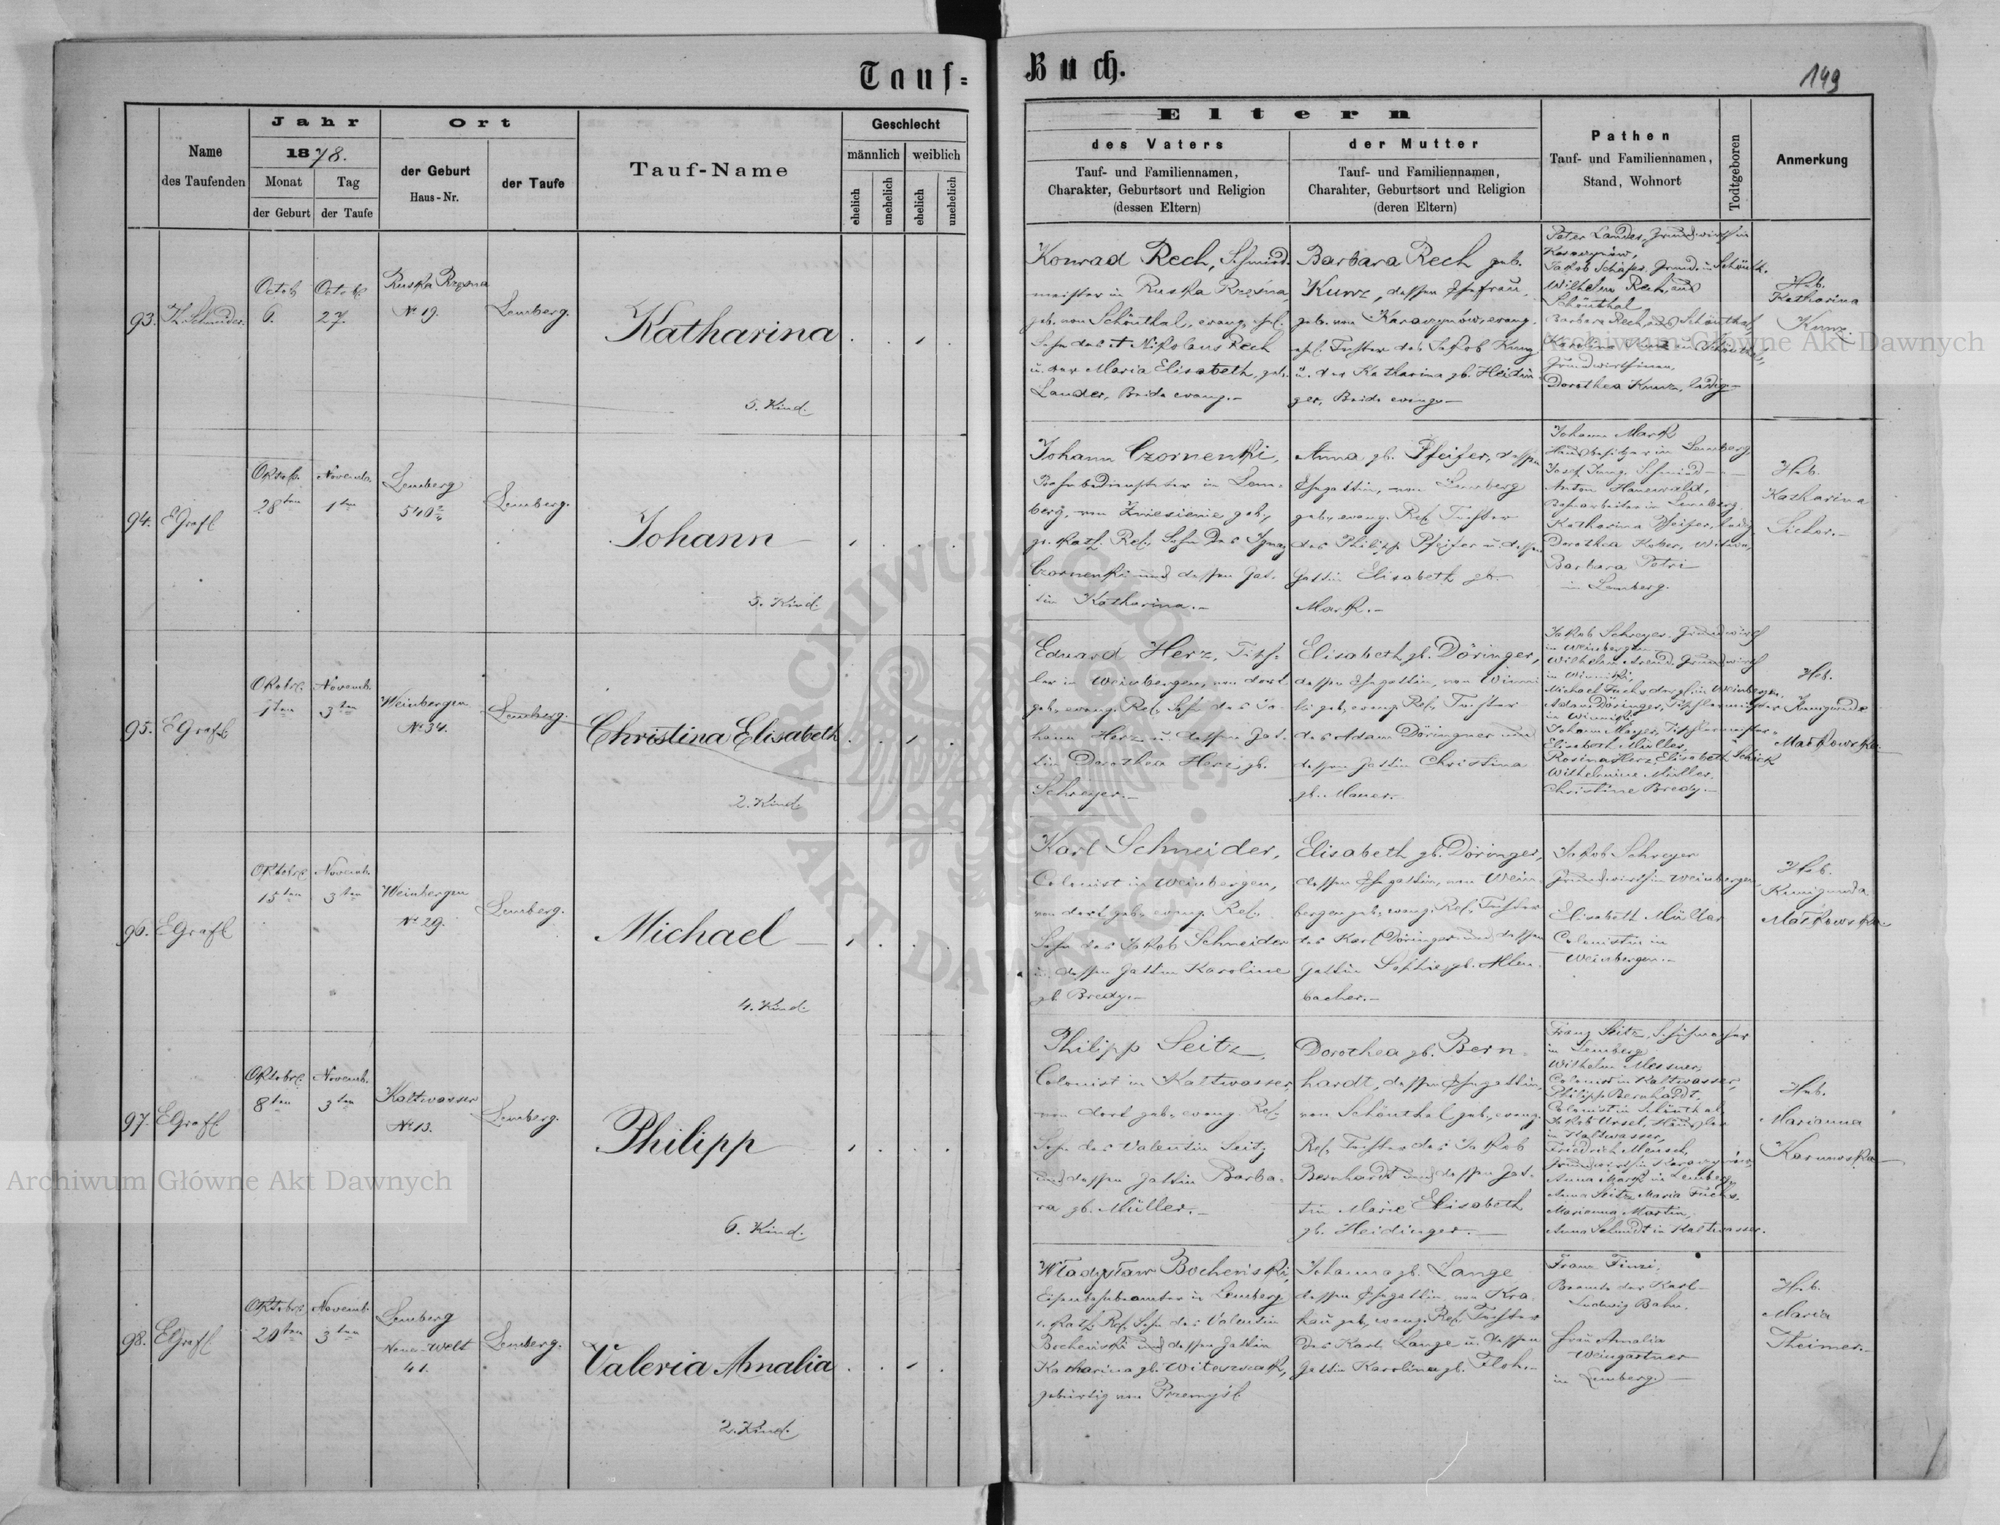 Tauf-
Buch.
149
Name
des Taufenden
Jahr
1878.
Monat
der Geburt
Tag
der Taufe
Ort
der Geburt
Haus-Nr.
der Taufe
Tauf-Name
Geschlecht
männlich
weiblich
ehelich
unehelich
ehelich
unehelich
Eltern
des Vaters
Tauf- und Familiennamen,
Charakter, Geburtsort und Religion
(dessen Eltern)
der Mutter
Tauf- und Familiennamen,
Charahter, Geburtsort und Religion
(deren Eltern)
Pathen
Tauf- und Familiennamen,
Stand, Wohnort
Todtgeboren
Anmerkung
93.
Octob.
6.
Octob.
27.
Ruska Rzęsna
Nr 19.
Lemberg.
Katharina
5. Kind.
Konrad Rech, Schmied-
meister in Ruska Rzęsna,
geb. von Schönthal, evang. ref.
Sohn des † Nikolaus Rech
u. der Maria Elisabeth, geb.
Lander, Beide evang.-
Barbara Rech geb.
Kunz, dessen Ehefrau,
geb. von Karaczynów, evang.
ref. Tochter des Jakob Kunz
u. der Katharina gb. Heidin-
ger, Beide evang.-
Peter Lander, Grundwirth in
Karaczynów,
Jakob Schäfer, Grundw. in Schönth.
Wilhelm Rech, aus
Schönthal
Barbara Rech, aus Schönthal,
Grundwirthinen,
Dorothea Kunz, ledig-
Heb.
Katharina
Kunz.
94.
EGrafl
Oktob.
28ten
Novemb.
1ten
Lemberg
Lemberg.
Johann
5. Kind.
Johann Czornenki,
Bahnbediensteter in Lem-
berg, von Zniesienie geb.,
gr. kath. Rel. Sohn des Ignaz
Czornenki und dessen Gat-
tin Katharina.-
Anna gb. Pfeifer, dessen
Ehegattin, von Lemberg
geb., evang. Rel. Tochter
des Philipp Pfeifer u. dessen
Gattin Elisabeth gb.
Mark.-
Johann Mark
Hausbesitzer in Lemberg,
Josef Jung, Schmied
Anton
Bahnarbeiter in Lemberg
Katharina Pfeifer, ledig
Dorothea Kober, Witwe,
Barbara Petri
in Lemberg.
Heb.
Katharina
95.
EGrafl
Oktobr.
1ten
Novemb.
3ten
Weinbergen
Nr 34.
Lemberg.
Christina Elisabeth
2. Kind.
Eduard Herz, Tisch-
ler in Weinbergen, von dort
geb., evang. Rel. Sohn des Jo-
hann Herz u. dessen Gat-
tin Dorothea Herz gb.
Schreyer.-
Elisabeth gb. Döringer,
dessen Ehegattin, von Winni-
ki geb., evang. Rel. Tochter
des Adam Döringer und
dessen Gattin Christina
gb. Mauer.
Jakob Schreyer, Grundwirth
in Weinbergen
Wilhelm Arend, Grundwirth
in Winniki,
Michael Fuchs dergl. in Weinbergen.
Adam Döringer, Tischlermeister
in Winniki
Johann Mayer, Tischlermeister
Elisabeth Müller,
Rosina Herz, Elisabeth Schick
Wilhelmine Müller,
Christine Bredy.-
Heb.
Kunigunde
Matkowska
96.
EGrafl
Oktobr.
15ten
Novemb.
3ten
Weinbergen
Nr 29.
Lemberg.
Michael
4. Kind.
Karl Schneider,
Colonist in Weinbergen,
von dort geb., evang. Rel.
Sohn des Jakob Schneider
u. dessen Gattin Karoline
gb. Bredy.-
Elisabeth gb. Döringer,
dessen Ehegattin, von Wein-
bergen geb., evang. Rel. Tochter
des Karl Döringer und dessen
Gattin Sophie, gb. Allen-
bacher.-
Jakob Schreyer
Grundwirth in Weinbergen
Elisabeth Müller
Colonistin in
Weinbergen.-
Heb.
Kunigunda
Matkowska
97.
EGrafl
Oktobr.
8ten
Novemb.
3ten
Kaltwasser
Nr 13.
Lemberg.
Philipp
6. Kind.
Philipp Seitz,
Colonist in Kaltwasser,
von dort geb., evang. Rel.
Sohn des Valentin Seitz
und dessen Gattin Barba-
ra gb. Müller.-
Dorothea gb. Bern-
hardt, dessen Ehegattin,
von Schönthal geb., evang.
Rel. Tochter des Jakob
Bernhardt und dessen Gat-
tin Marie Elisabeth
gb. Heidinger.-
Franz Seitz, Schuhmacher
in Lemberg
Wilhelm Messner,
Colonist in Kaltwasser,
Philipp Bernhardt,
Colonist in Schönthal,
in Kaltwasser,
Friedrich Mensch,
Grundwirth in Karaczynów,
Anna Mark in Lemberg,
Anna Seitz, Maria Fuchs,
Marianna Martin,
Anna Schmidt in Kaltwasser.
Heb.
Marianna
98.
EGrafl
Oktobr.
20ten
Novemb.
3ten
Lemberg
Neue-Welt
41.
Lemberg.
Valeria Amalia
2. Kind.
Władysław Bocheński,
Eisenbahnbeamter in Lemberg
r. kath. Rel. Sohn des Valentin
Bocheński und dessen Gattin
Katharina gb. Witeszczak,
gebürtig von Przemyśl.
Johanna gb. Lange
dessen Ehegattin, von Kra-
kau geb., evang. Rel. Tochter
des Karl Lange u. dessen
Gattin Karolina gb. Floh.-
Franz Finzi,
Beamte der Karl-
Ludwig Bahn.
Frau Amalia
Weingartner
in Lemberg.-
Heb.
Maria
Theimer.
Archiwum Główne Akt Dawnych
Archiwum Główne Akt Dawnych
ARCHIWUM GŁÓWNE AKT DAWNYCH